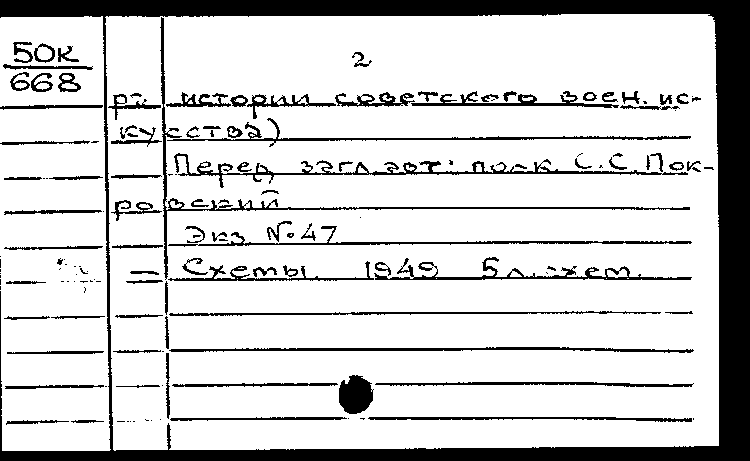 50К
668
2
ры истории советского воен. ис-
кусства)
Перед загл. авт: полк. С.С. Пок-
ровский
Экз №47
— Схемы. 1949 5 л. схем.